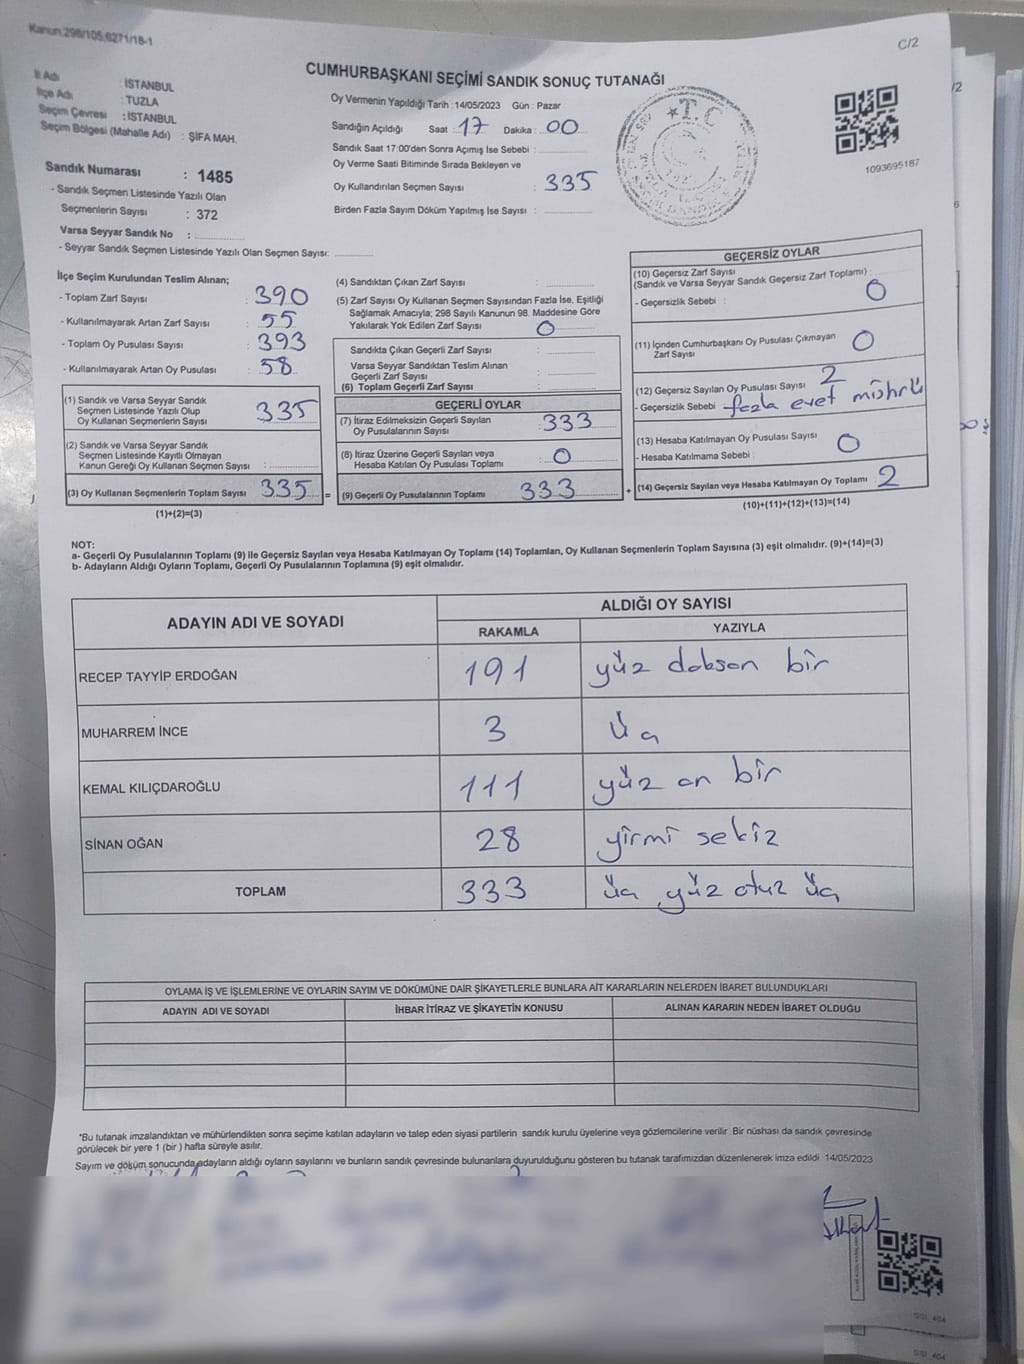 Kanun:298/105,6271/18-1
C/2
İl Adı : İSTANBUL
İlçe Adı : TUZLA
Seçim Çevresi : İSTANBUL
Seçim Bölgesi (Mahalle Adı) : ŞİFA MAH.
CUMHURBAŞKANI SEÇİMİ SANDIK SONUÇ TUTANAĞI
Oy Vermenin Yapıldığı Tarih : 14/05/2023 Gün : Pazar
Sandığın Açıldığı Saat : 17 Dakika : 00
Sandık Saat 17:00'den Sonra Açımış İse Sebebi :
Oy Verme Saati Bitiminde Sırada Bekleyen ve
Oy Kullandırılan Seçmen Sayısı : 335
Birden Fazla Sayım Döküm Yapılmış İse Sayısı :
T.C
1093695187
Sandık Numarası : 1485
- Sandık Seçmen Listesinde Yazılı Olan
Seçmenlerin Sayısı : 372
Varsa Seyyar Sandık No :
- Seyyar Sandık Seçmen Listesinde Yazılı Olan Seçmen Sayısı:
İlçe Seçim Kurulundan Teslim Alınan;
- Toplam Zarf Sayısı : 390
- Kullanılmayarak Artan Zarf Sayısı : 55
- Toplam Oy Pusulası Sayısı : 393
- Kullanılmayarak Artan Oy Pusulası : 58
(1) Sandık ve Varsa Seyyar Sandık
Seçmen Listesinde Yazılı Olup
Oy Kullanan Seçmenlerin Sayısı : 335
(2) Sandık ve Varsa Seyyar Sandık
Seçmen Listesinde Kayıtlı Olmayan
Kanun Gereği Oy Kullanan Seçmen Sayısı :
(3) Oy Kullanan Seçmenlerin Toplam Sayısı 335 =
(1)+(2)=(3)
(4) Sandıktan Çıkan Zarf Sayısı :
(5) Zarf Sayısı Oy Kullanan Seçmen Sayısından Fazla İse, Eşitliği
Sağlamak Amacıyla; 298 Sayılı Kanunun 98. Maddesine Göre
Yakılarak Yok Edilen Zarf Sayısı : 0
Sandıkta Çıkan Geçerli Zarf Sayısı :
Varsa Seyyar Sandıktan Teslim Alınan
Geçerli Zarf Sayısı :
(6) Toplam Geçerli Zarf Sayısı :
GEÇERLİ OYLAR
(7) İtiraz Edilmeksizin Geçerli Sayılan
Oy Pusulalarının Sayısı : 333
(8) İtiraz Üzerine Geçerli Sayılan veya
Hesaba Katılan Oy Pusulası Toplamı : 0
(9) Geçerli Oy Pusulalarının Toplamı 333 +
GEÇERSİZ OYLAR
(10) Geçersiz Zarf Sayısı
(Sandık ve Varsa Seyyar Sandık Geçersiz Zarf Toplamı) :
- Geçersizlik Sebebi : 0
(11) İçinden Cumhurbaşkanı Oy Pusulası Çıkmayan
Zarf Sayısı 0
(12) Geçersiz Sayılan Oy Pusulası Sayısı : 2
- Geçersizlik Sebebi : fazla evet mührü
(13) Hesaba Katılmayan Oy Pusulası Sayısı : 0
- Hesaba Katılmama Sebebi :
(14) Geçersiz Sayılan veya Hesaba Katılmayan Oy Toplamı : 2
(10)+(11)+(12)+(13)=(14)
NOT:
a- Geçerli Oy Pusulalarının Toplamı (9) ile Geçersiz Sayılan veya Hesaba Katılmayan Oy Toplamı (14) Toplamları, Oy Kullanan Seçmenlerin Toplam Sayısına (3) eşit olmalıdır. (9)+(14)=(3)
b- Adayların Aldığı Oyların Toplamı, Geçerli Oy Pusulalarının Toplamına (9) eşit olmalıdır.
ADAYIN ADI VE SOYADI
ALDIĞI OY SAYISI
RAKAMLA YAZIYLA
RECEP TAYYİP ERDOĞAN 191 yüz doksan bir
MUHARREM İNCE 3 üç
KEMAL KILIÇDAROĞLU 111 yüz on bir
SİNAN OĞAN 28 yirmi sekiz
TOPLAM 333 üç yüz otuz üç
OYLAMA İŞ VE İŞLEMLERİNE VE OYLARIN SAYIM VE DÖKÜMÜNE DAİR ŞİKAYETLERLE BUNLARA AİT KARARLARIN NELERDEN İBARET BULUNDUKLARI
ADAYIN ADI VE SOYADI İHBAR İTİRAZ VE ŞİKAYETİN KONUSU ALINAN KARARIN NEDEN İBARET OLDUĞU
*Bu tutanak imzalandıktan ve mühürlendikten sonra seçime katılan adayların ve talep eden siyasi partilerin sandık kurulu üyelerine veya gözlemcilerine verilir. Bir nüshası da sandık çevresinde
görülecek bir yere 1 (bir) hafta süreyle asılır.
Sayım ve döküm sonucunda adayların aldığı oyların sayılarını ve bunların sandık çevresinde bulunanlara duyurulduğunu gösteren bu tutanak tarafımızdan düzenlenerek imza edildi. 14/05/2023